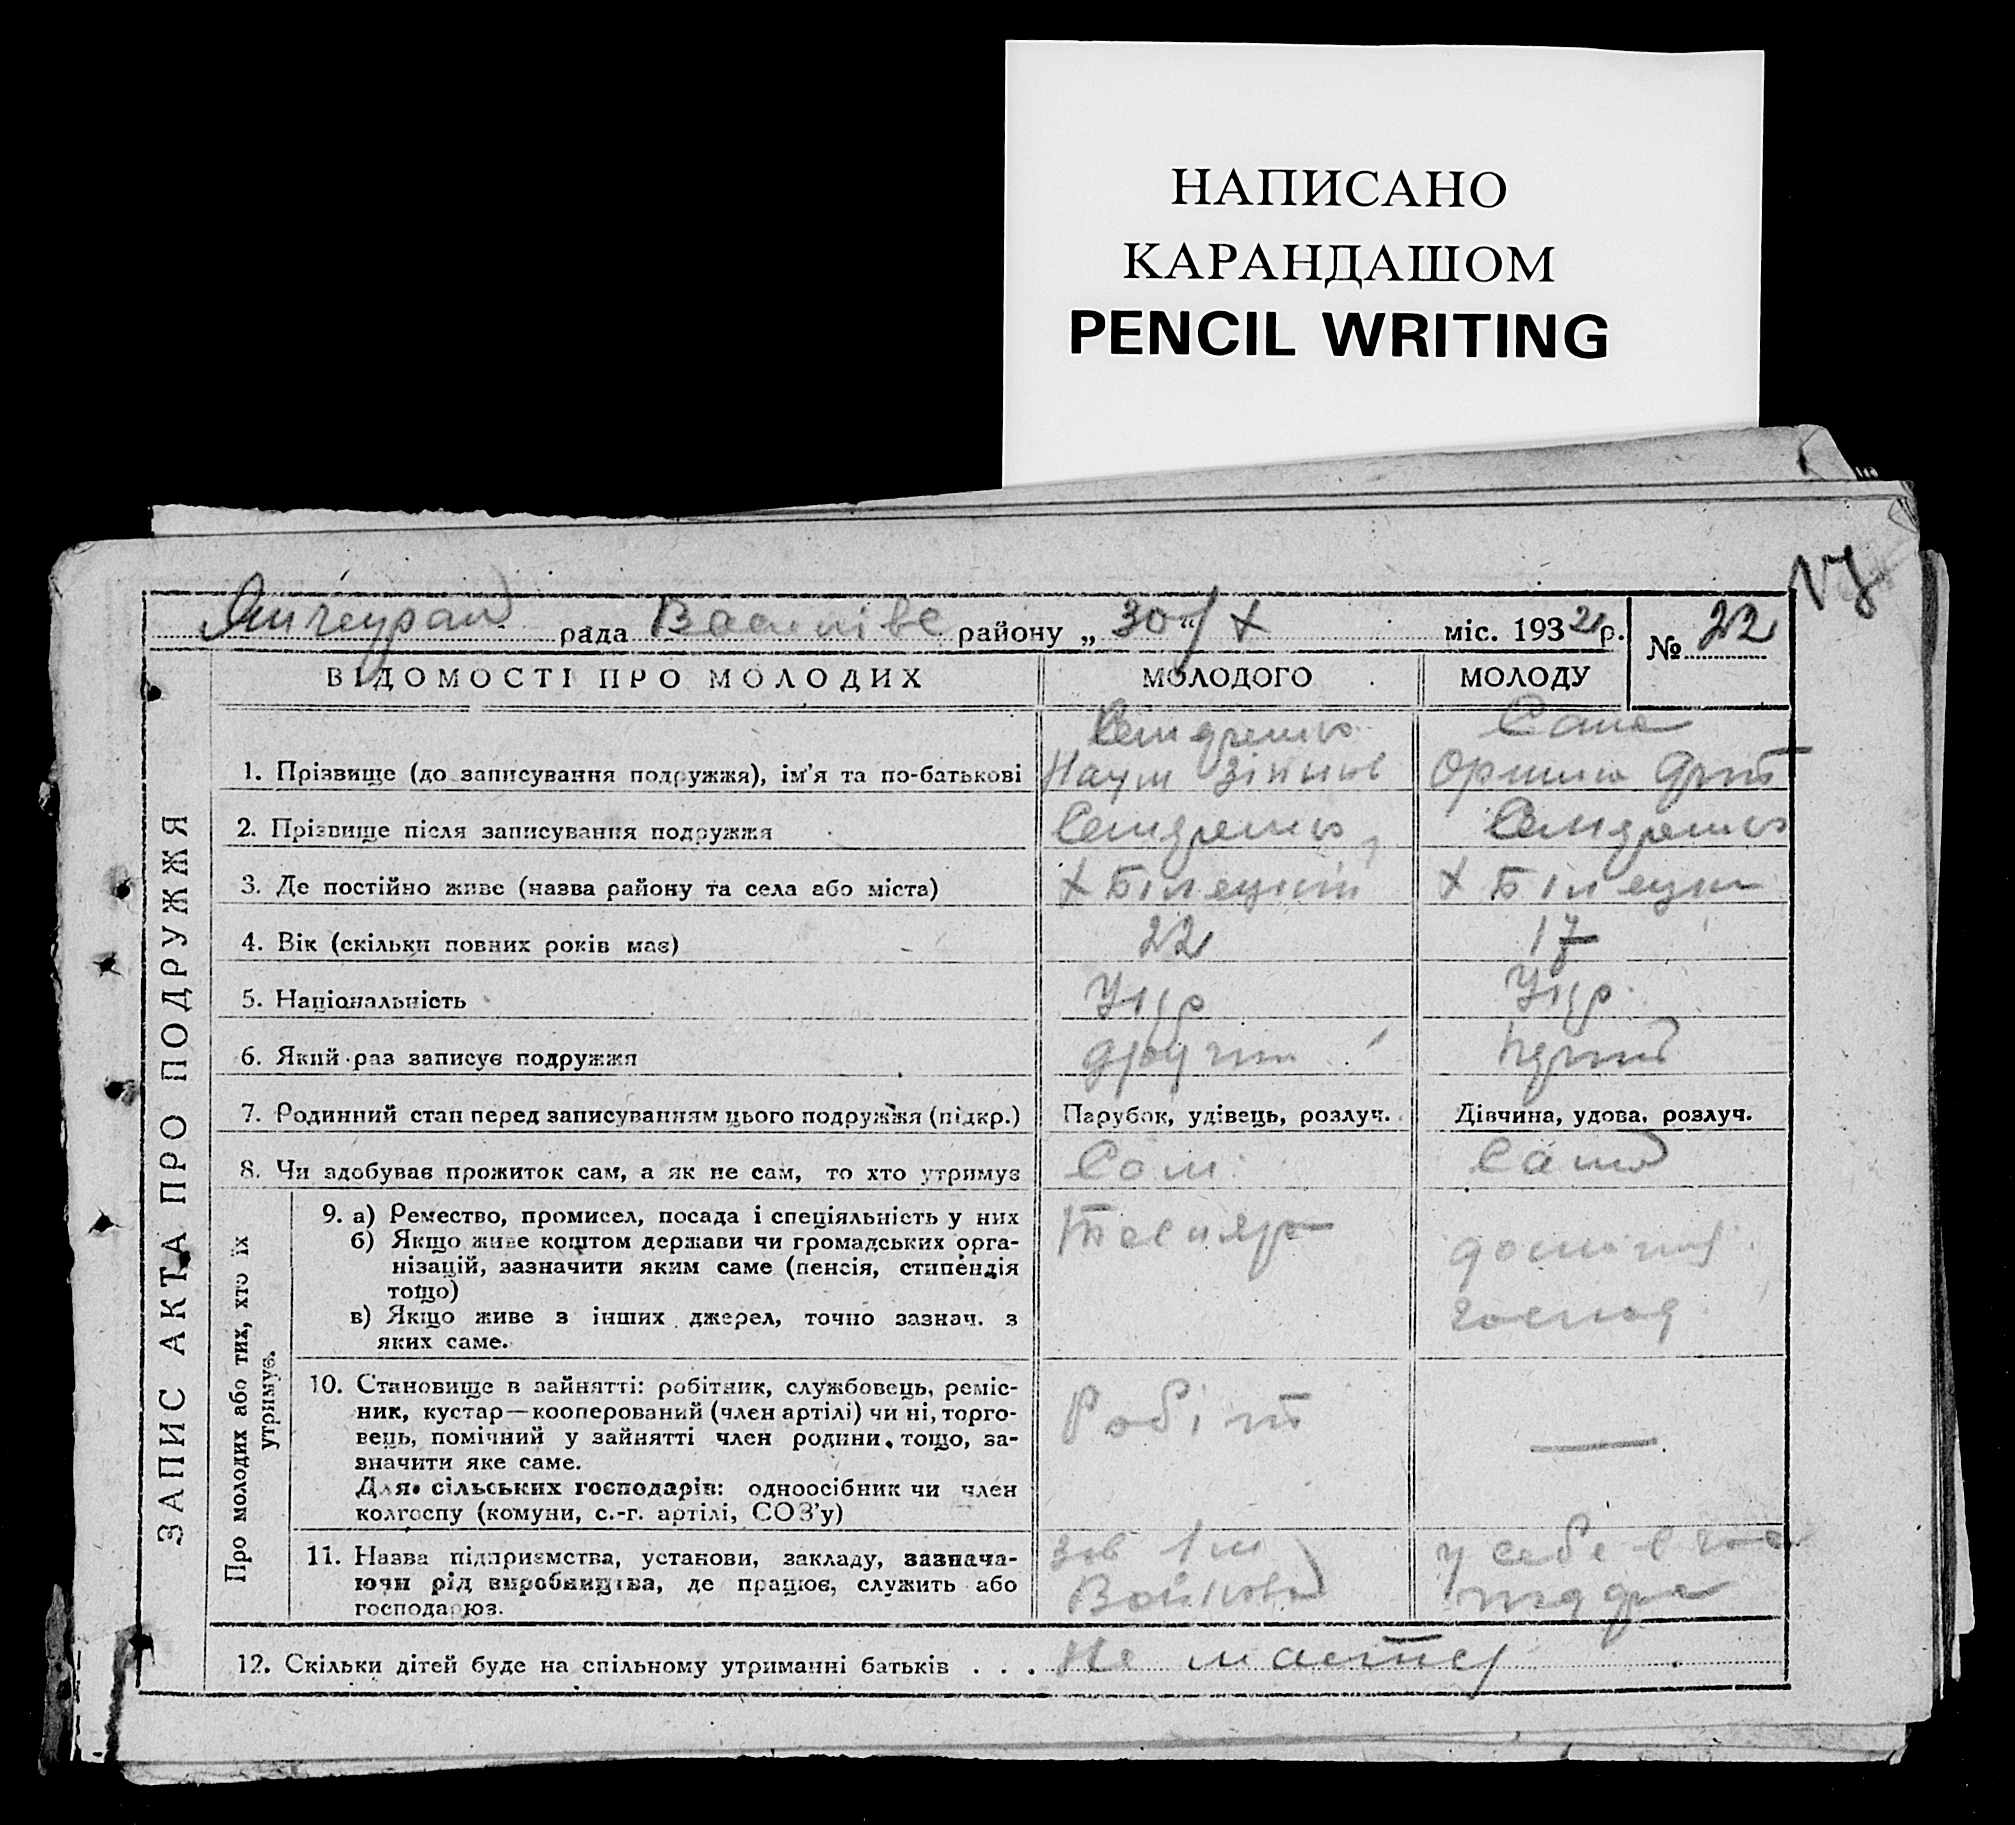 НАПИСАНО
КАРАНДАШОМ
PENCIL WRITING
рада району „30“ X міс. 1932 р.
№ 22
ВІДОМОСТІ ПРО МОЛОДИХ МОЛОДОГО МОЛОДУ
ЗАПИС АКТА ПРО ПОДРУЖЖЯ
1. Прізвище (до записування подружжя), ім’я та по-батькові Наум
2. Прізвище після записування подружжя
3. Де постійно живе (назва району та села або міста) х х
4. Вік (скільки повних років має) 22 17
5. Національність Укр Укр
6. Який раз записує подружжя
7. Родинний стан перед записуванням цього подружжя (підкр.) Парубок, удівець, розлуч. Дівчина, удова, розлуч.
8. Чи здобуває прожиток сам, а як не сам, то хто утримує Сам Сама
Про молодих або тих, хто їх утримує.
9. а) Ремество, промисел, посада і спеціяльність у них
б) Якщо живе коштом держави чи громадських орга-
нізацій, зазначити яким саме (пенсія, стипендія
тощо)
в) Якщо живе з інших джерел, точно зазнач. з
яких саме.
Тесляр
господ
10. Становище в зайнятті: робітник, службовець, реміс-
ник, кустар—кооперований (член артілі) чи ні, торго-
вець, помічний у зайнятті член родини, тощо, за-
значити яке саме.
Для сільських господарів: одноосібник чи член
колгоспу (комуни, с.-г. артілі, СОЗ’у)
Робіт —
11. Назва підприємства, установи, закладу, зазнача-
ючи рід виробництва, де працює, служить або
господарює.
зав ім
Войкова
у себе в
12. Скільки дітей буде на спільному утриманні батьків . . . Не